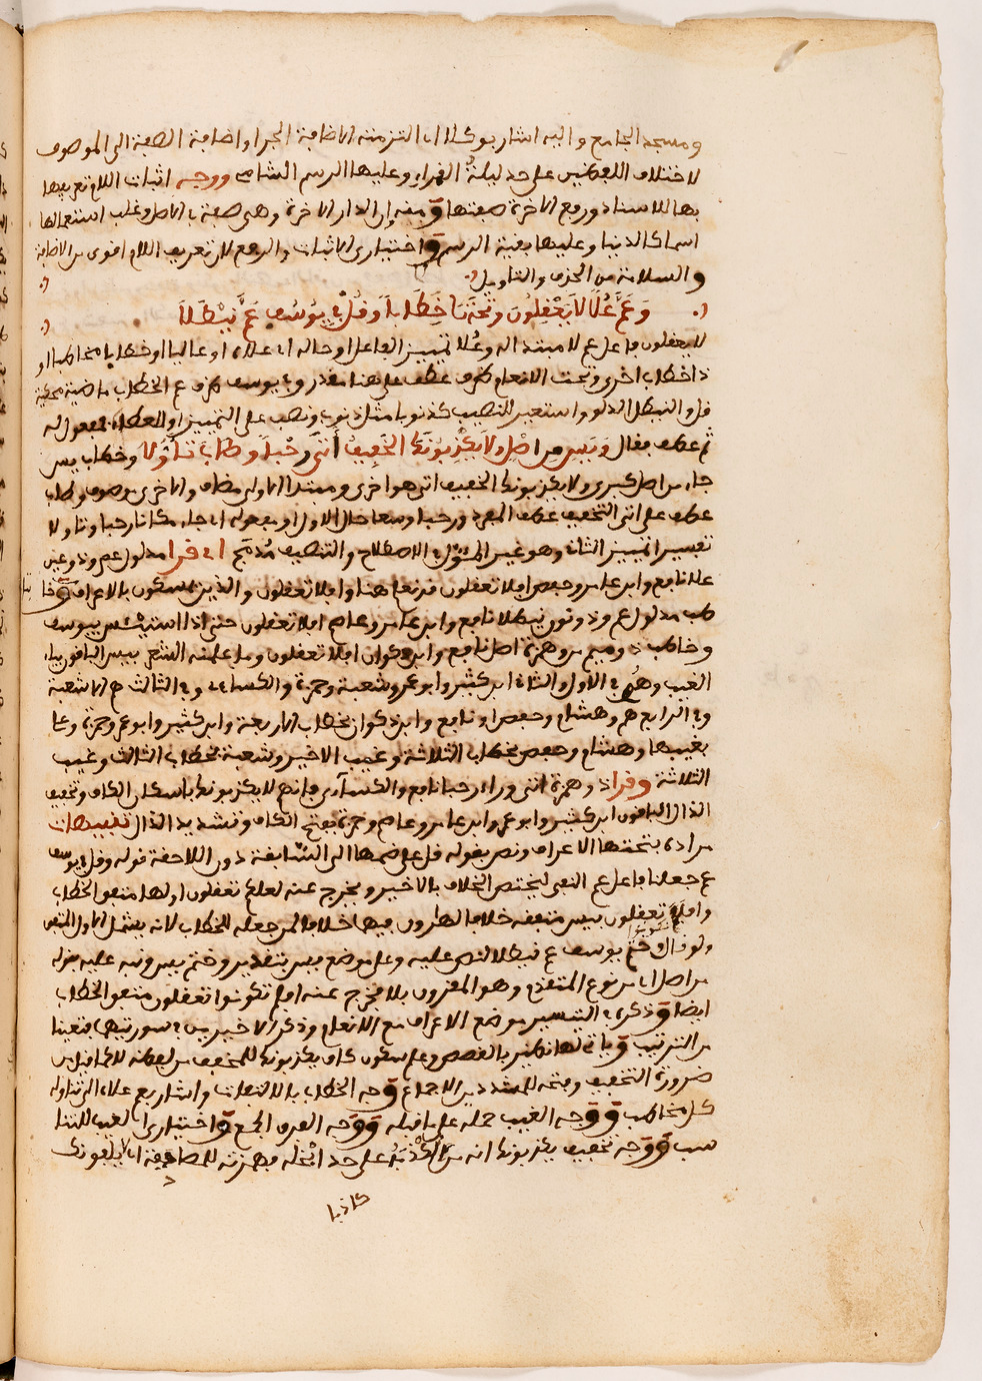 ومسجد الجامع واليه اشار بوكلا اى التزمته الاضافة الجر او اضافة الصفة الى الموصوف
لاختلاف اللفظين على حد ليلة القمراء وعليها الرسم الشامى ووجه اثبات اللام تعريفها
بها للاسناد ورفع الاخرة صفتها ومنه ان الدار الاخرة وهى صفة بالاصل وغلب استعمالها
اسما كالدنيا وعليها بقية الرسم واختيارى الاثبات والرفع لان تعريف اللام اقوى من الاضافة
والسلامة من الحذف والتاويل
وَعَمَّ عُلًا لَا يَعْقِلُونَ وَتَحْتَهَا خِطَابًا وَقُلْ فِي يُوسُفٍ عَمَّ نَيْطَلَا
لا يعقلون فاعل عم لا مبتدا له وعلا تمييز الفاعل او حاله اى علاء او عاليا او خطابا مخاطبا او
ذا خطاب اخرى وتحت الانعام ظرف عطف على هنا مقدر وفى يوسف ظرف عم الخطاب ماضية محكية
قل والنيطل الدلو واستعير للنصيب كذنوبا مثل ذنوب ونصب على التمييز او للعطاء مفعول له
ثم عطف فقال وَيس مِن اصْلٍ وَلَا يُكْذِبُونَكَ الخَفِيفُ أَتَى رُحْبًا وَطَابَ تَأَوُّلَا وخطاب يس
جاء من اصل كبرى ولا يكذبونك الخفيف اتى هو اخرى ومبتدا الاولى مضاف والاخرى موصوف وطاب
عطف على اتى التخفيف عطف المفرد ورحبا وسعا حال الاول او مفعوله اى جاء مكانا رحبا وتاولا
تفسيرا تمييز الثانى وهو غير المسؤل فى الاصطلاح والتنصيف مدمج اى قرا مدلول عم وذو عين
علا نافع وابن عامر وحفص افلا تعقلون قد نعلم هنا وافلا تعقلون والذين يمسكون بالاعراف وخا
طب مدلول عم وذو نون نيطلا نافع وابن عامر وعاصم افلا تعقلون حتى اذا استيئس بيوسف
وخاطب ذو ميم من وهمزة اصل نافع وابن ذكوان افلا تعقلون وما علمنه الشعر بيس الباقون بياء
الغيب وهم فى الاول والثانى ابن كثير وابو عمرو وشعبة وحمزة والكسائى وفى الثالث هم الا شعبة
وفى الرابع هم وهشام وحفص او نافع وابن ذكوان بخطاب الاربعة وابن كثير وابو عمرو وحمزة وعلى
بغيبها وهشام وحفص بخطاب الثلاثة وغيب الاخير وشعبة بخطاب الثالث وغيب
الثلاثة وقرا ذو همزة اتى وراء رحبا نافع والكسآءى فانهم لا يكذبونك باسكان الكاف وتخفيف
الذال الباقون ابن كثير وابو عمرو وابن عامر وعاصم وحمزة بفتح الكاف وتشديد الذال تنبيهات
مراده بتحتها الاعراف ونص بقوله قل على ضمها الى السابقة دون اللاحقة قوله وقل فى يوسف
عم جعلنا فاعل عم النفى ليختص الخلاف بالاخير ويخرج عنه لعلكم تعقلون اولها متفق الخطاب
وافلم تعقلون بيس متفقه خلافا لطرون فيها خلافا لمن جعله للخطاب لانه يشمل الاول المتفق
ولو قال وختم يوسف عم نيطلا لنص عليه وعلى موضع يس بتقدير وختم يس ونبه عليه بقوله
من اصل اى من نوع المتقدم وهو المقرون بلا فخرج عنه افلم تكونوا تعقلون متفق الخطاب
ايضا وذكر فى التيسير موضع الاعراف مع الانعام وذكر الاخيرين فى سورتيهما فتعينا
من الترتيب وياتى لها نظير بالقصص وعلم سكون كاف يكذبونك للمخفف من لفظه لا اقبل من
ضرورة التخفيف وفتحه للمشدد من الاجماع وجه الخطاب بالالتفات واشار بعم علاء الى تناوله
كل مخاطب ووجه الغيب حمله على ما قبله ووجه الفرق الجمع واختيارى الغيب للتنا
سب ووجه تخفيف يكذبونك انه من اَكْذَبَهُ على حد ابخله فهمزته للمصادفة اى لا يلفونك
كاذبا